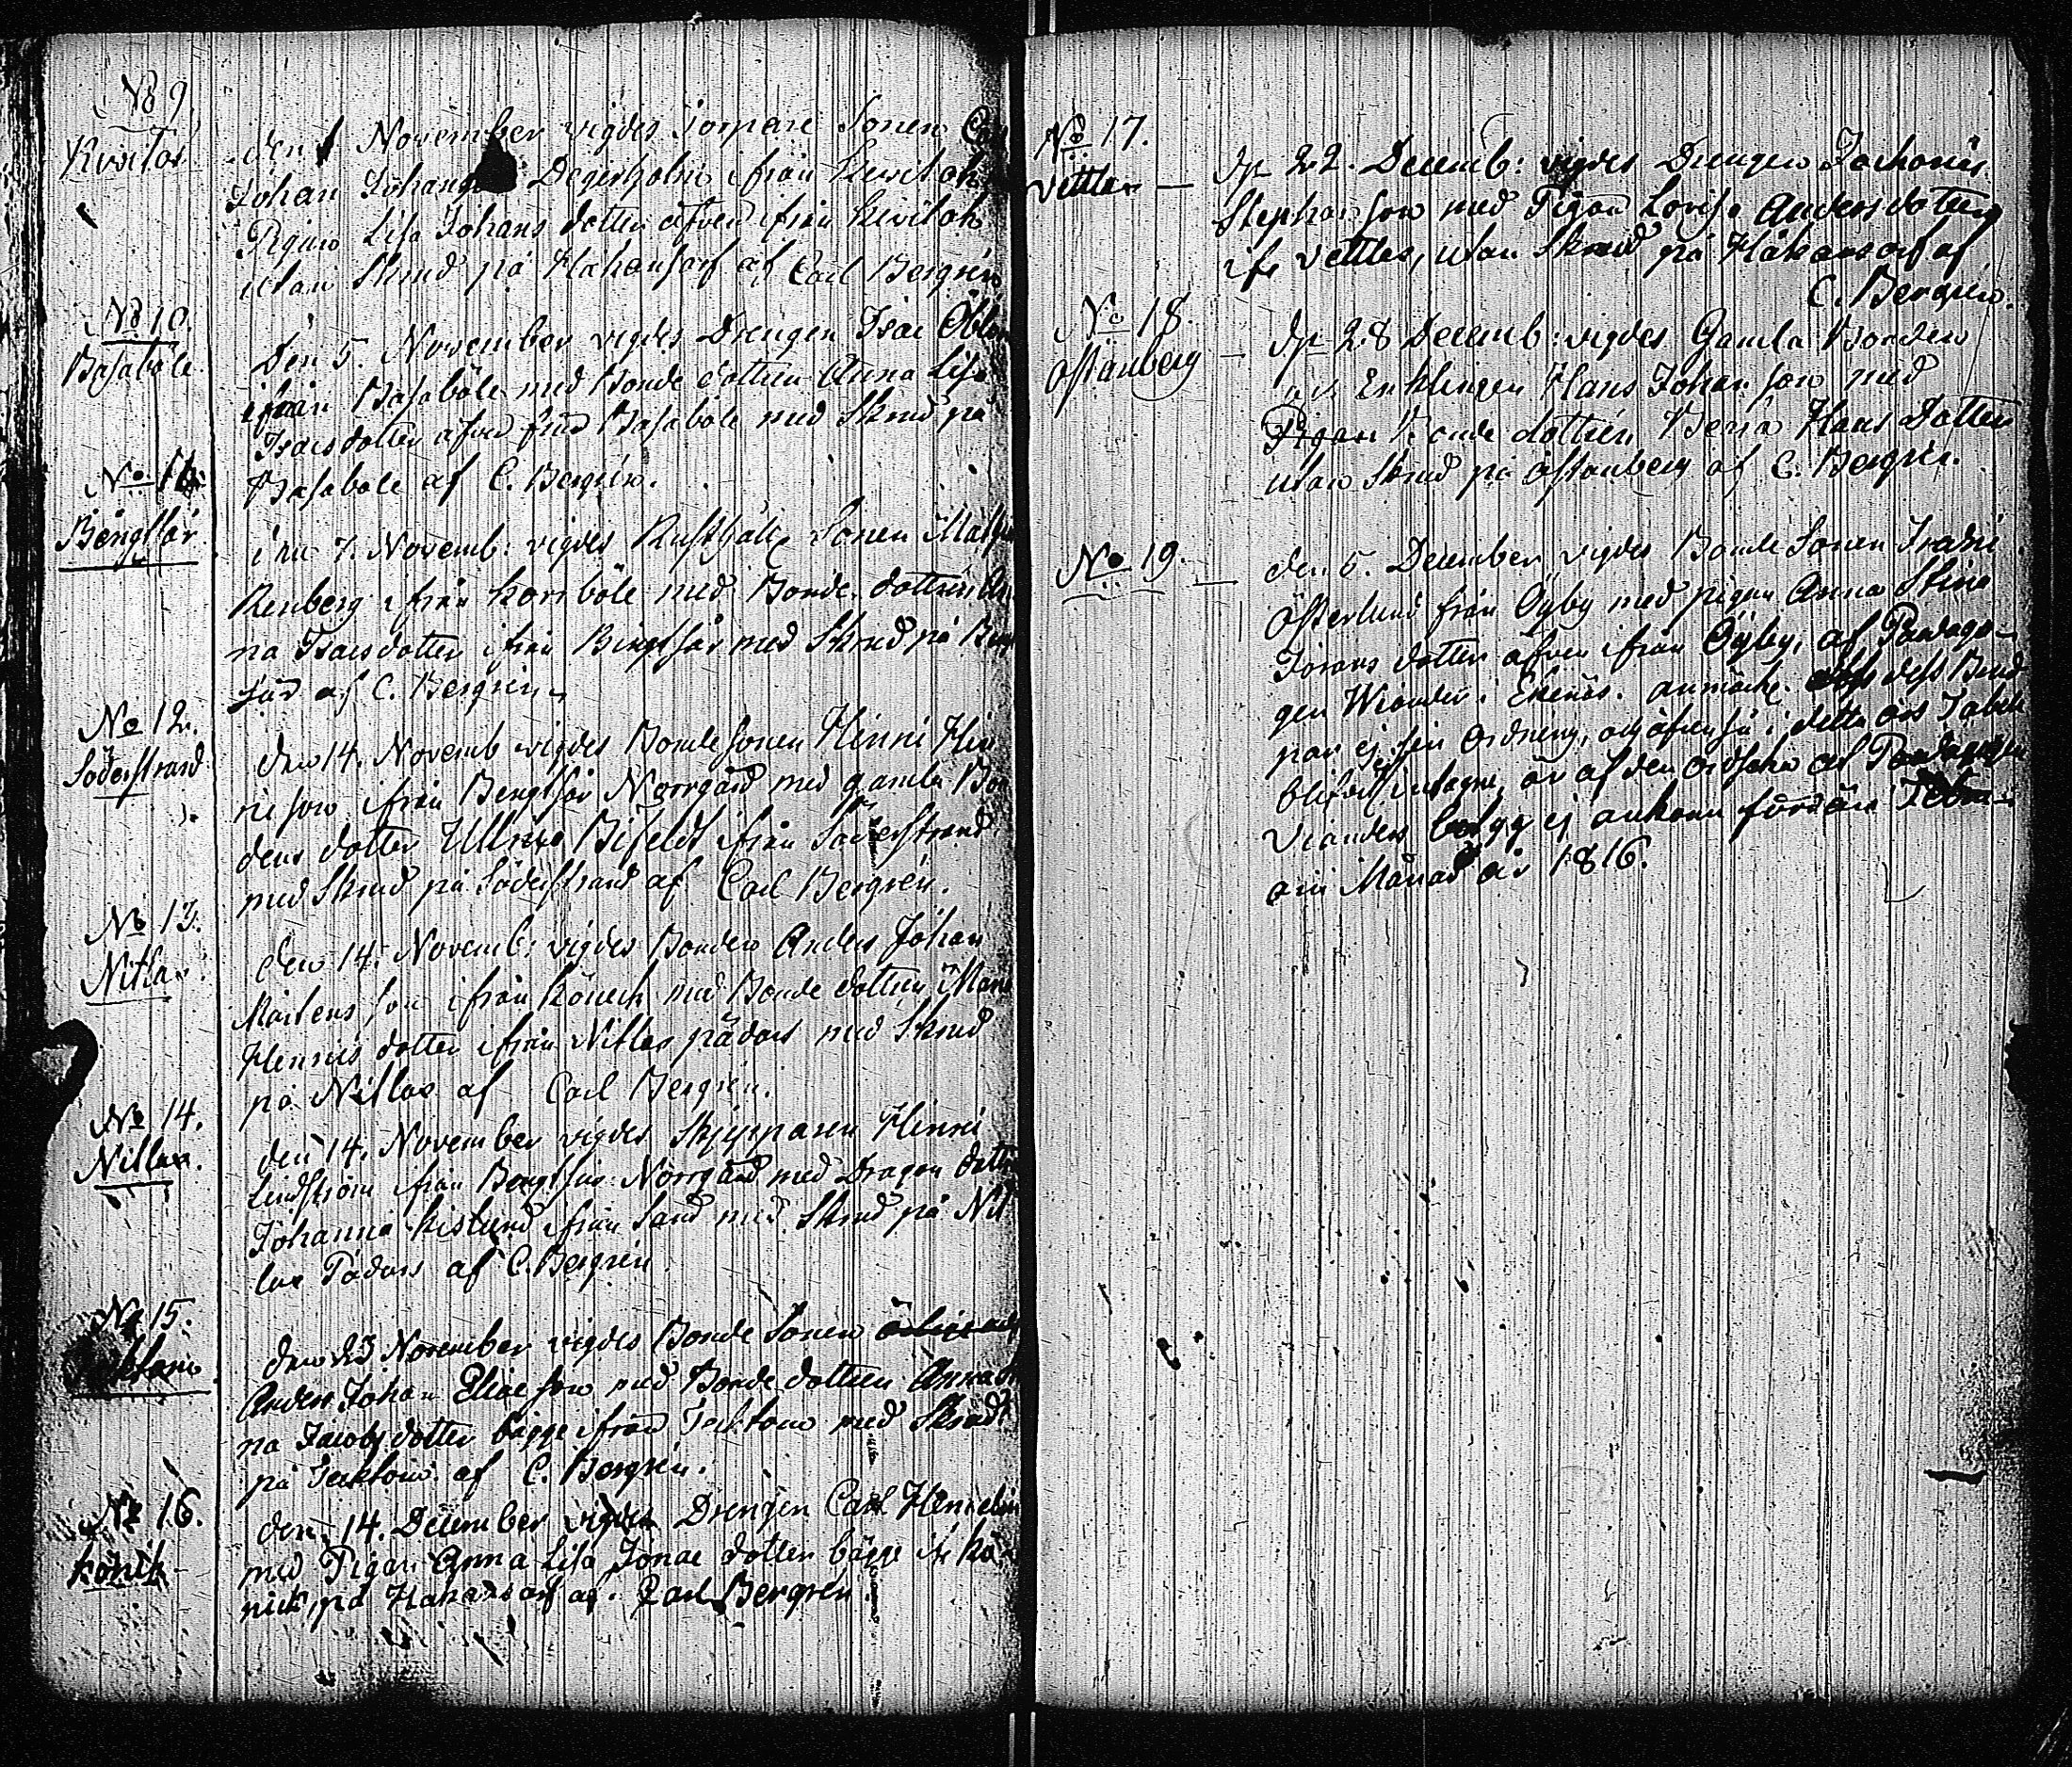 N:o 9.
Kivitok
den 1 November vigdes Torpare Sonen
Johan Degerholm ifrån Kivitok
Pigan Lisa Johans dotter äfven ifrån Kivitok
utan Skrud på Håkansarf af Carl Bergrén
N:o 10.
Basaböle
Den 5. November vigdes Drengen Isac
ifrån Basaböle med Bonde dottren Anna Lisa
Isacs dotter äfven från Basaböle med Skrud på
Basaböle af C. Bergrén.
N:o 11.
Bengtsår
den 7. Novemb: vigdes Rusthåll Sonen
Renberg ifrån Korsböle med Bonde dottren An
na Isacs dotter ifrån Bengtsår med Skrud på
sår af C. Bergrén
No 12.
Söderstrand
den 14. Novemb vigdes Bonde sonen Henric Hin
ric son ifrån Bengtsår Norrgård med gamla Bon
dens dotter Ulrica ifrån Söderstrand
med Skrud på Söderstrand af Carl Bergrén.
No 13.
Nitlax.
den 14. Novemb: vigdes Bonden Anders Johan
Mårtens son ifrån Könick med Bonde dottren Maria
Henrics dotter ifrån Nitlax pådars med Skrud
på Nitlax af Carl Bergrén.
No 14.
Nitlax.
den 14. November vigdes Skepparen Henric
Lindström ifrån Bengtsår Norrgård med Dragon dottr
Johanna ifrån Sand med Skrud på Nit
lax Pådars af C. Bergrén
No 15.
den 23 November vigdes Bonde Sonen
Anders Johan Eliae son med Bonde dottren Anna
na Jacobs dotter bägge ifrån Jecktom med Skrud
på Jecktom af C. Bergrén.
No 16.
Könik
den 14. December vigdes Drengen Carl
med Pigan Anna Lisa Jonae dotter bägge ifr Kö
nick, på Håkansarf af Carl Bergrén
No 17.
Vettlax
d: 22. Decemb: vigdes Drengen Zacharias
Stephanson med Pigan Lovisa Anders dotter
ifr Vettlax, utan Skrud på Håkansarf af
C. Bergrén.
No 18.
Östanberg
d: 28 Decemb: vigdes Gamla Bonden
Enklingen Hans Johan son med
Pigan Bonde dottren Beata Hans dotter
utan Skrud på Östanberg af C. Bergrén.
No 19.
den 5. December vigdes Bonde Sonen
Österlund från Öyby med pigan Anna Stina
Jörans dotter äfven ifrån Öyby, af Pædago-
gen Wiander i Ekenäs. anmärkes dess
par ej i sin ordning, och äfven så i detta års Tabell
blifvit intagne, är af den orsak at Pædagogen
Vianders ej ankom förrän Febru-
arii Månad år 1816.